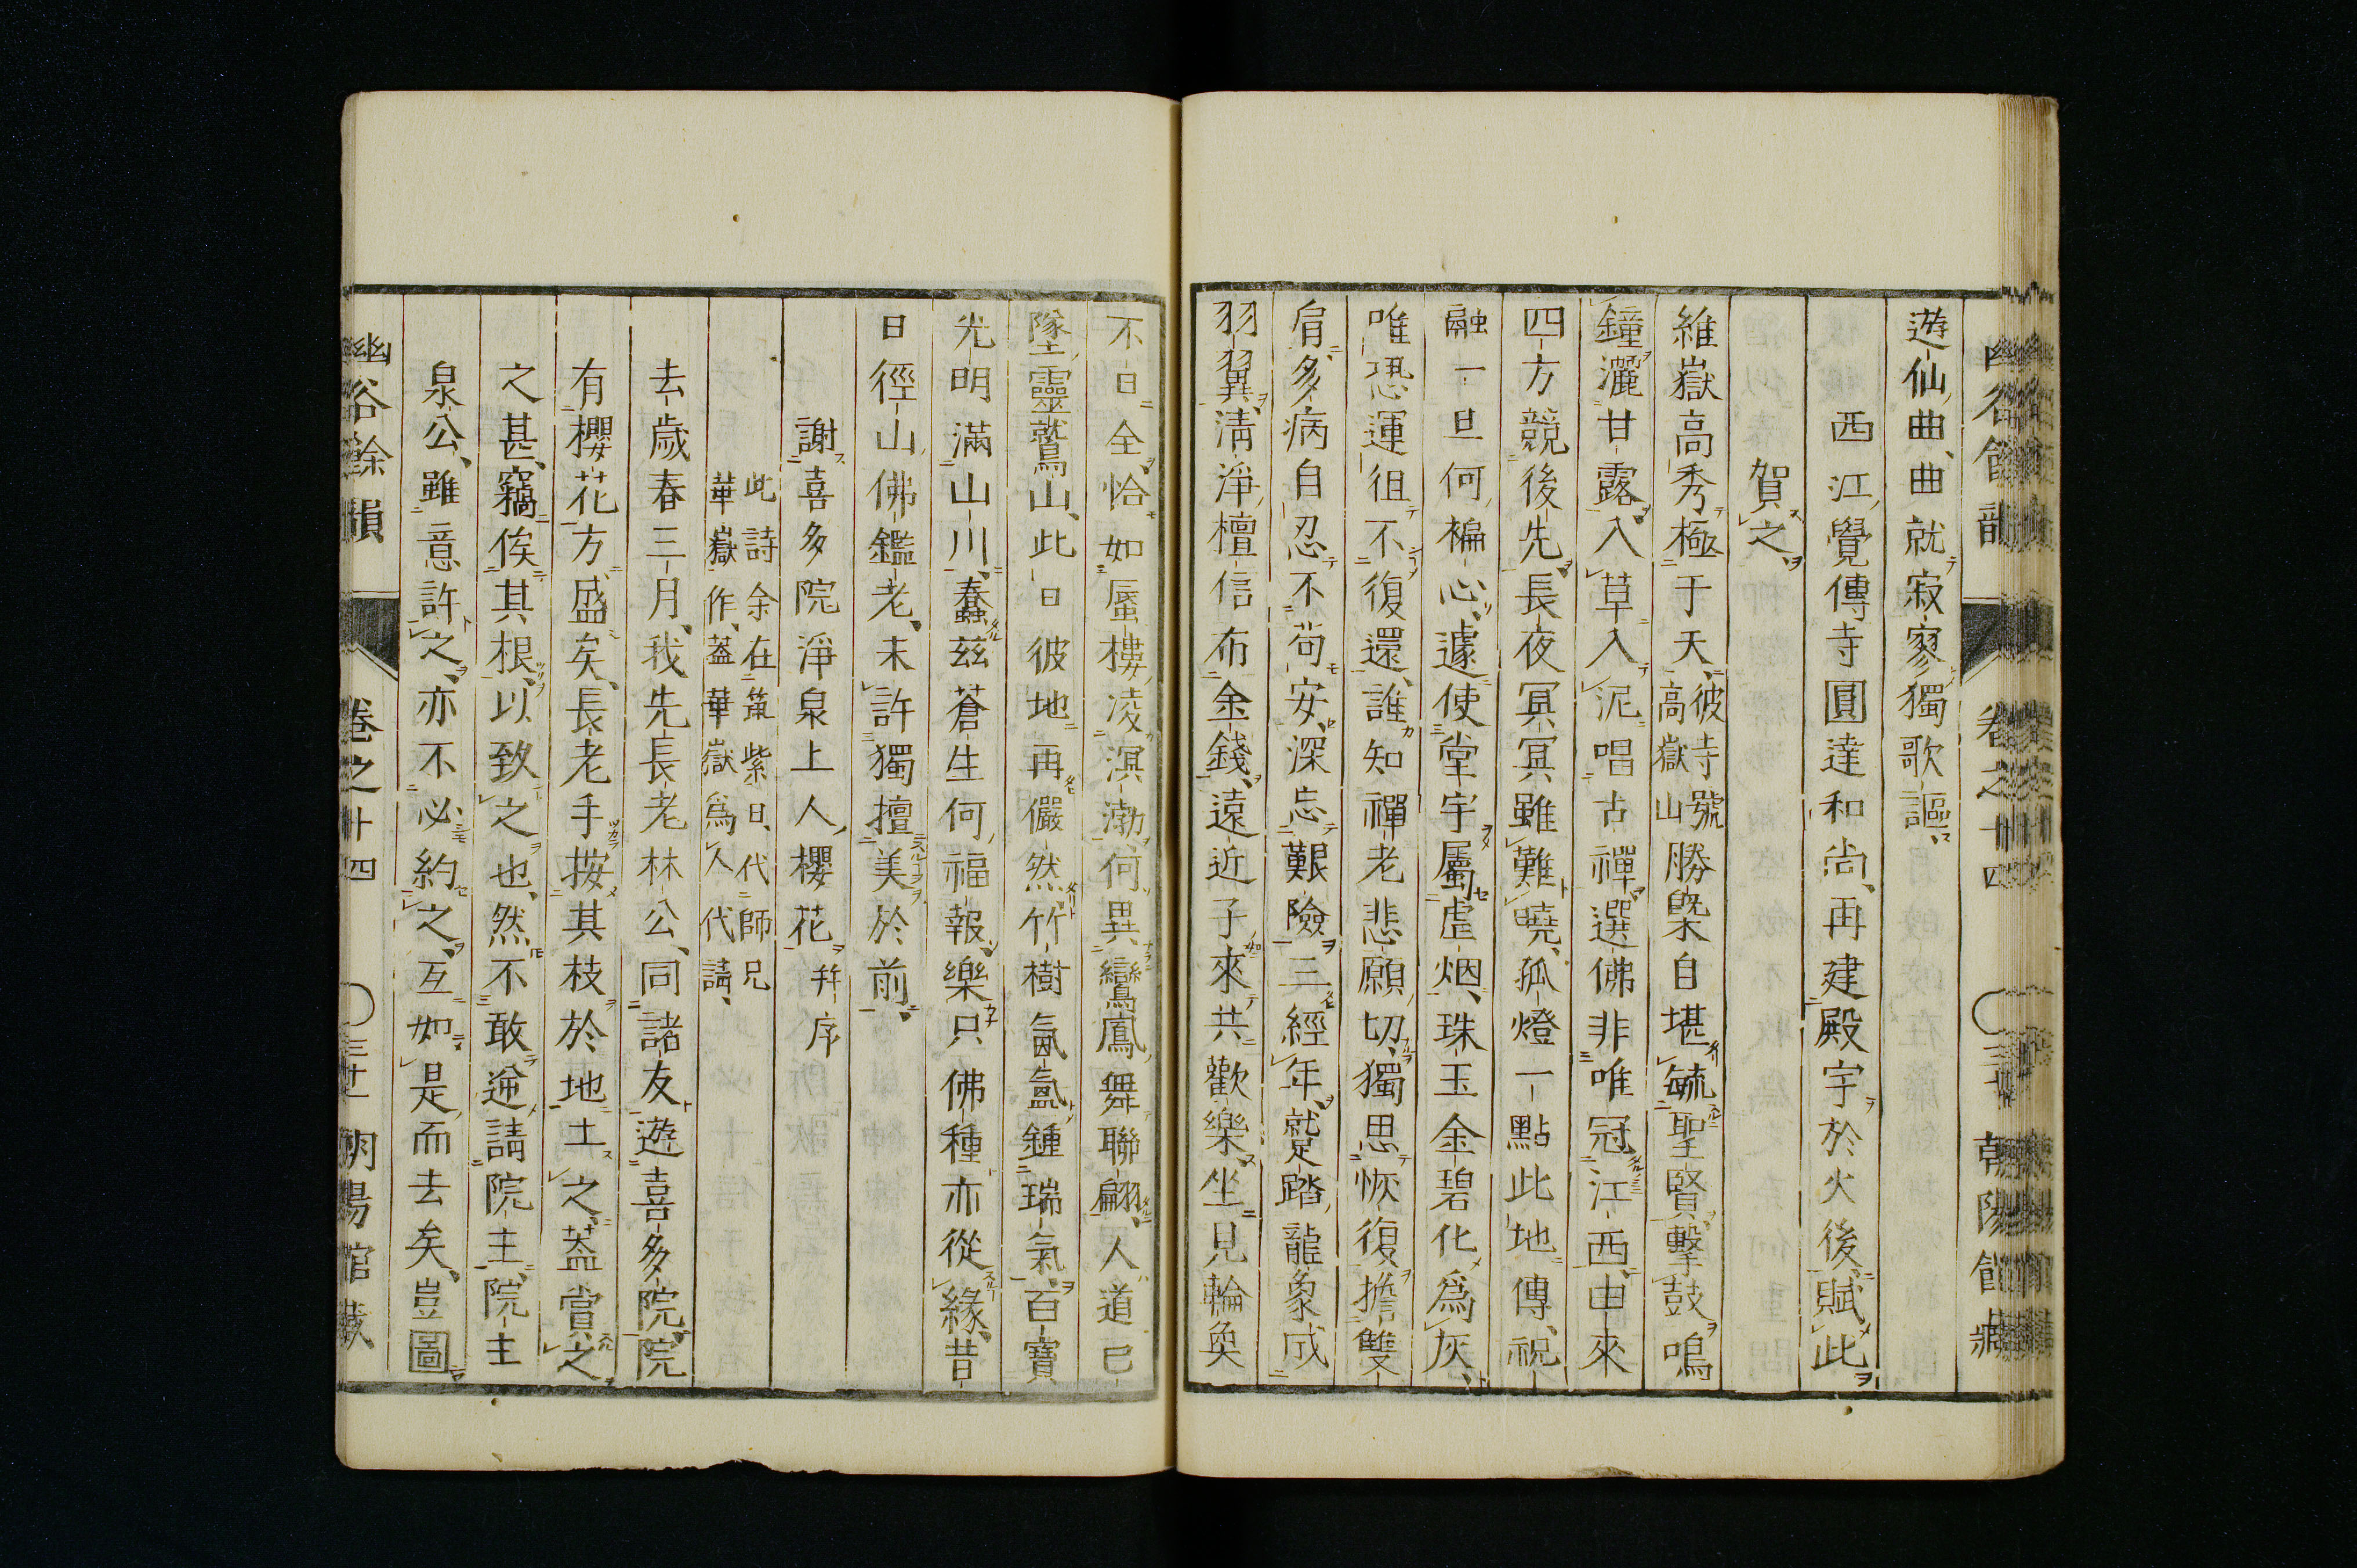 遊仙曲、曲就寂寥獨歌謳、
西江覺傳寺圓達和尚、再建殿宇於火後、賦此
賀之、
維嶽高秀極于天、彼寺號高嶽山勝槩自堪毓聖賢、擊鼓鳴
鐘灑甘露、入草入泥唱古禪、選佛非唯冠江西、由來
四方競後先、長夜冥冥雖難曉、孤燈一點此地傳、祝
融一旦何褊心、遽使堂宇屬虛烟、珠玉金碧化爲灰、
唯恐運徂不復還、誰知禪老悲願切、獨思恢復擔雙
肩、多病自忍不苟安、深忘艱險三經年、蹴踏龍象成
羽翼、淸淨檀信布金錢、遠近子來共歡樂、坐見輪奐
不日全、恰如蜃樓凌溟渤、何異鸞鳳舞聯翩、人道已
墜靈鷲山、此日彼地再儼然、竹樹氤氳鍾瑞氣、百寶
光明滿山川、蠢茲蒼生何福報、樂只佛種亦從緣、昔
日徑山佛鑑老、未許獨擅美於前、
謝喜多院淨泉上人櫻花幷序
此詩余在築紫日、代師兄
華嶽作、蓋華嶽爲人代請、
去歲春三月、我先長老林公、同諸友遊喜多院、院
有櫻花方盛矣、長老手按其枝於地土之、蓋嘗之
之甚、竊俟其根、以致之也、然不敢逆請院主、院主
泉公、雖意許之、亦不必約之、互如是而去矣、豈圖
幽谷餘韻 卷之十四 三十一 朝陽館藏